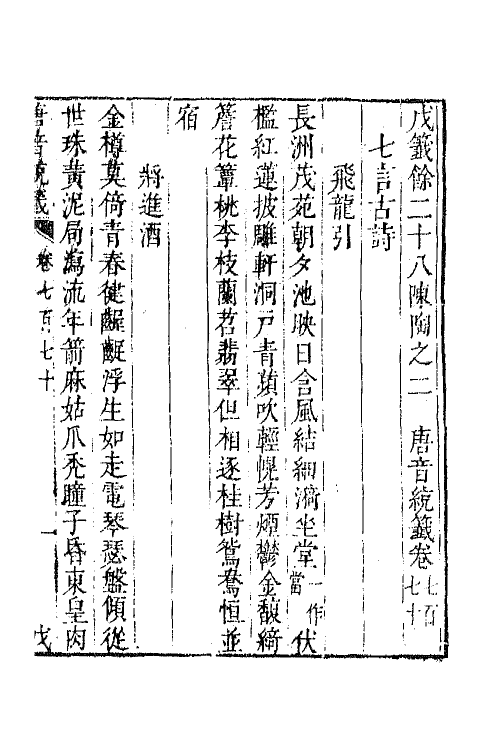 戊籖餘二十八陳陶之二　唐音統籖卷七百七十
七言古詩
飛龍引
長洲茂苑朝夕池映日含風結細漪坐堂一作當伏
檻紅蓮披雕軒洞戸青蘋吹輕幌芳煙鬱金馥綺
簷花簟桃李枝蘭苕翡翠但相逐桂樹鴛鴦恒並
宿
將進酒
金樽莫倚青春健齷齪浮生如走電琴瑟盤傾從
世珠黄泥局瀉流年箭麻姑爪禿瞳子昏東皇肉
唐音統籖　卷七百七十　一　戊